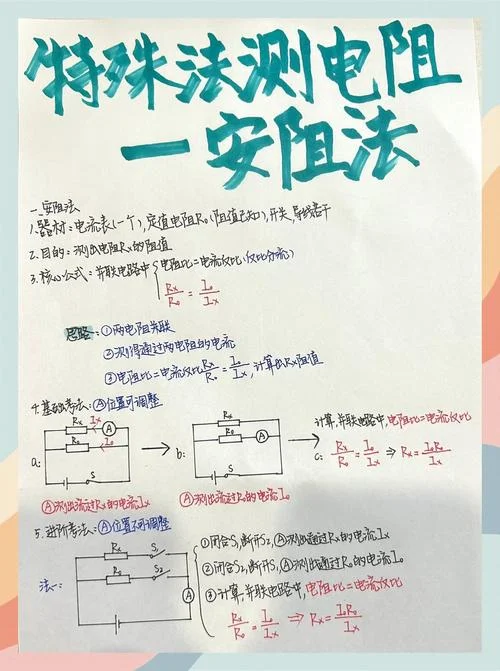 特殊法测电阻
一安阻法
一.安阻法
1.器材:电流表(一个),定值电阻R₀(阻值已知),开关,导线若干
2.目的:测出电阻Rx的阻值
3.核心公式:并联电路中{电阻比=电流反比(反比分流)
Rx/R₀=I₀/Ix
思路:①两电阻并联
②测得通过两电阻的电流
③电阻比=电流反比Rx/R₀=I₀/Ix,计算出Rx阻值
4.基础考法:Ⓐ位置可调整
a: Rx Ix A R₀ I₀ S
b: Rx R₀ A S
计算,并联电路中,电阻比=电流反比
c: Rx/R₀=I₀/Ix ⇒ Rx=I₀R₀/Ix
Ⓐ测出流过Rx的电流Ix
Ⓐ测出流过R₀的电流I₀
5.进阶考法:Ⓐ位置不可调整
法一: Rx S₁ R₀ S₂ A
①闭合S₁,断开S₂,Ⓐ测出通过Rx的电流Ix
②闭合S₂,断开S₁,Ⓐ测出通过R₀的电流I₀
③计算,并联电路中,电阻比=电流反比
Rx/R₀=I₀/Ix ⇒ Rx=I₀R₀/Ix